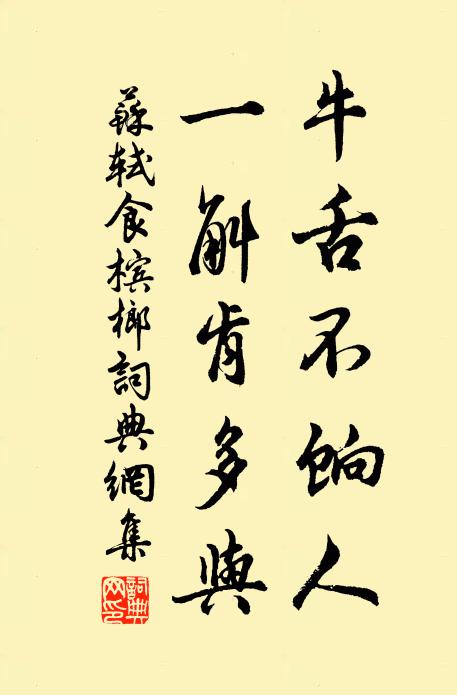 牛舌不餉人
一斛肯多與
蘇軾食檳榔詞典網集
詞典網印